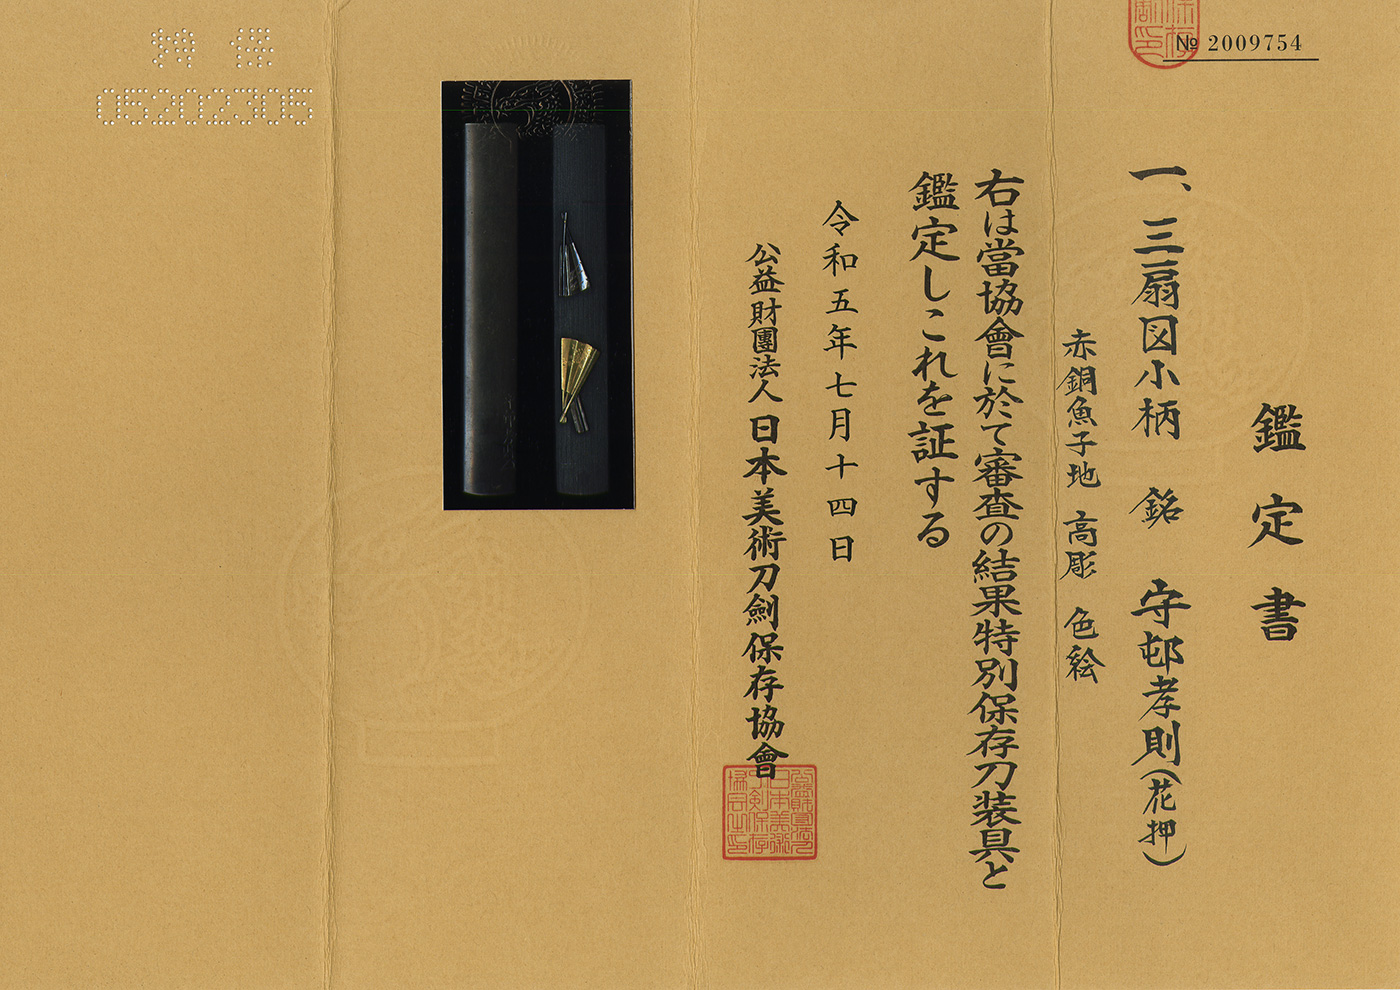 № 2009754
鑑定書
一、三扇図小柄 銘 守邨孝則(花押)
赤銅魚子地 高彫 色絵
右は當協會に於て審査の結果特別保存刀装具と
鑑定しこれを証する
令和五年七月十四日
公益財團法人日本美術刀劍保存協會
05202305